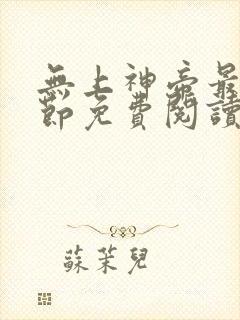 無上神帝最
節免費閱讀
蘇茉兒